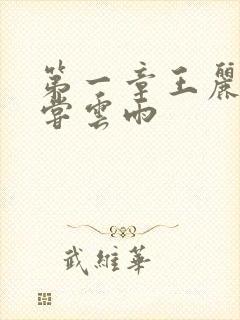 第一章王麗
嘗雲雨
武維華